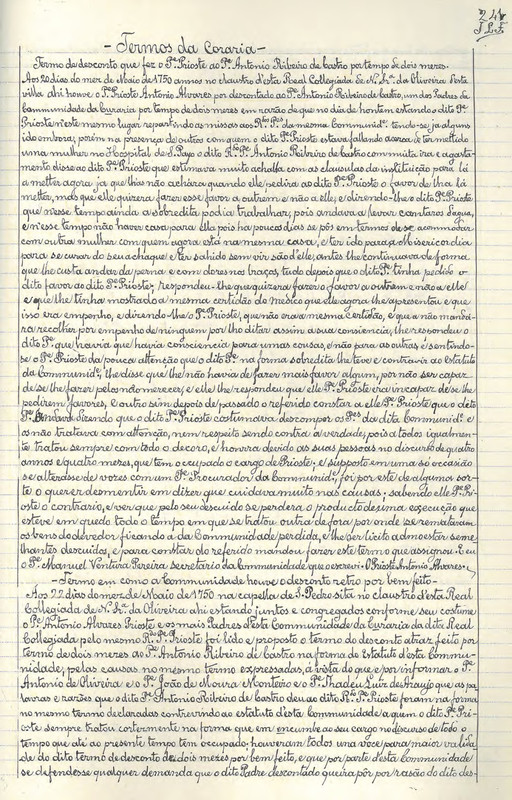 241
- Termos da Coraria -
Termo de desconto que fez o Pe. Prioste ao Pe. Antonio Ribeiro de Castro por tempo de dois mezes.
Aos 20 dias do mez de Maio de 1750 annos no claustro d'esta Real Collegiada de N. Snrª. da Oliveira d'esta
villa ahi houve o Pe. Prioste Antonio Alvares por descontado ao Pe. Antonio Ribeiro de Castro, um dos Padres da
Communidade da Curaria por tempo de dois mezes em razão de que no dia de hontem estando o dito Pe.
Prioste n'este mesmo lugar repartindo as missas aos Rdos. Pes. da mesma Communide. tendo-se ja alguns
ido embora, porém na presença de outros com quem o dito Pe. Prioste estava fallando acerca de ter mettido
uma mulher no Hospital de S. Payo o dito Rdo. Pe. Antonio Ribeiro de Castro com muita ira e agasta-
mento disse ao dito Pe. Prioste que estimava muito achalla com as clausulas da instituição para lá
a metter agora já que lhas não achára quando elle pedira ao dito Pe. Prioste o favor de lha lá
metter, mas que elle quizera fazer esse favor a outrem e não a elle, e dizendo-lhe o dito Pe. Prioste
que n'esse tempo ainda a sobredita podia trabalhar, pois andava a levar cantaros d'agua,
e n'esse tempo não haver casa para ella pois ha poucos dias se pôs em termos de se accommodar
com outra mulher com quem agora está na mesma casa, e ter ido para a Misericordia
para se curar do seu achaque e ter sahido sem vir sã d'elle, antes lhe continuava de forma
que lhe custa andar da perna e com dores nos braços, tudo depois que o dito Pe. tinha pedido o
dito favor ao dito Pe. Prioste, respondeu-lhe que quizera fazer o favor a outrem e não a elle
e que lhe tinha mostrado a mesma certidão do Medico que elle agora lhe apresentou e que
isso era empenho, e dizendo-lhe o Pe. Prioste, que não era a mesma certidão, e que a não mandá-
ra recolher por empenho de ninguem por lho ditar assim a sua consciencia, lhe respondeu o
dito Pe. que havia que havia consciencia para umas cousas, e não para outras e sentindo-
se o Pe. Prioste da pouca attenção que o dito Pe. na forma sobredita lhe teve e contravir ao Estatuto
da Communide., lhe disse que lhe não havia de fazer mais favor algum, por não ser capaz
de se lhe fazer pelo não merecer, e elle lhe respondeu que elle Pe. Prioste era incapaz de se lhe
pedirem favores, e outro sim depois de passado o referido constar a elle Pe. Prioste que o dito
Pe. andava dizendo que o dito Pe. Prioste costumava descompor os Pes. da dita Communide. e
os não tratava com attenção, nem respeito sendo contra a verdade, pois a todos igualmen-
te tratou sempre com todo o decoro, e honra devido as suas pessoas no discurso de quatro
annos e quatro mezes, que tem occupado o cargo de Prioste, e supposto em uma só occasião
se alterasse de vozes com um Pe. Procurador da Communide., foi por este de algumas sor-
te o querer desmentir em dizer que cuidava muito nas causas, sabendo elle Pe. Pri-
oste o contrario, e ver que pelo seu descuido se perdera o producto de uma execução que
esteve em quedo todo o tempo em que se tratou outra de fora por onde se remataram
os bens do devedor ficando a da Communidade perdida, e lhe ser licito admoestar seme-
lhantes descuidos, e para constar do referido mandou fazer este termo que assignou. E eu
o Pe. Manuel Ventura Pereira secretario da Communidade que escrevi. O Prioste Antonio Alvares.
- Termo em como a Communidade houve o desconto retro por bem feito -
Aos 22 dias do mez de Maio de 1750 na capella de S. Pedro sita no claustro d'esta Real
Collegiada de N. Snrª. da Oliveira ahi estando juntos e congregados conforme seu costume
o Pe. Antonio Alvares Prioste e os mais Padres d'esta Communidade da Curaria da dita Real
Collegiada pelo mesmo Rdo. Pe. Prioste foi lido e proposto o termo do desconto atraz feito por
termo de dois mezes ao Pe. Antonio Ribeiro de Castro na forma do Estatuto d'esta Commu-
nidade, pelas causas no mesmo termo expressadas, á vista do que, e por informar o Pe.
Antonio de Oliveira e o Pe. João de Moura Monteiro e o Pe. Thadeu Luiz de Araujo que as pa-
lavras e razões que o dito Pe. Antonio Ribeiro de Castro deu ao dito Rdo. Pe. Prioste foram na forma
no mesmo termo declaradas contrevindo ao estatuto d'esta Communidade a quem o dito Pe. Pri-
oste sempre tratou cortezmente na forma que em incumbe ao seu cargo no discurso de todo o
tempo que até ao presente tempo tem occupado: houveram todos una voce para maior valida-
de do dito termo de desconto de dois mezes por bem feito, e que por parte d'esta Communidade
se defendesse qualquer demanda que o dito Padre descontado queira pôr por razão do dito des-